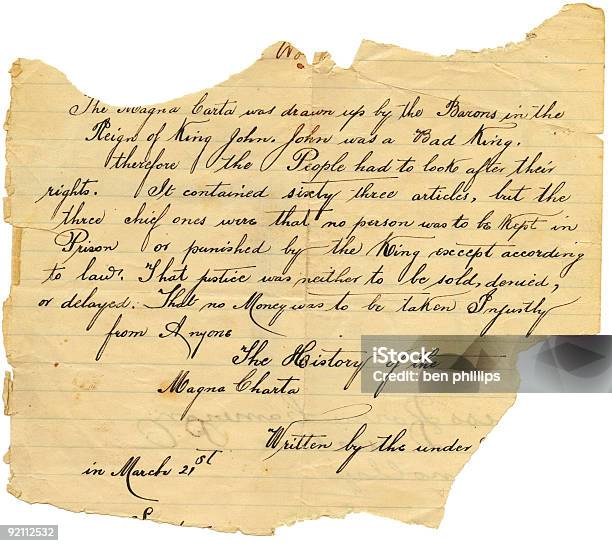 No
The Magna Carta was drawn up by the Barons in the
Reign of King John. John was a Bad King.
therefore the People had to look after their
rights. It contained sixty three articles, but the
three chief ones were that no person was to be kept in
Prison or punished by the King except according
to law. That justice was neither to be sold, denied,
or delayed. That no Money was to be taken Injustly
from Anyone
The History of the
Magna Charta
iStock
Credit: ben phillips
Written by the under
in March 21st
92112532